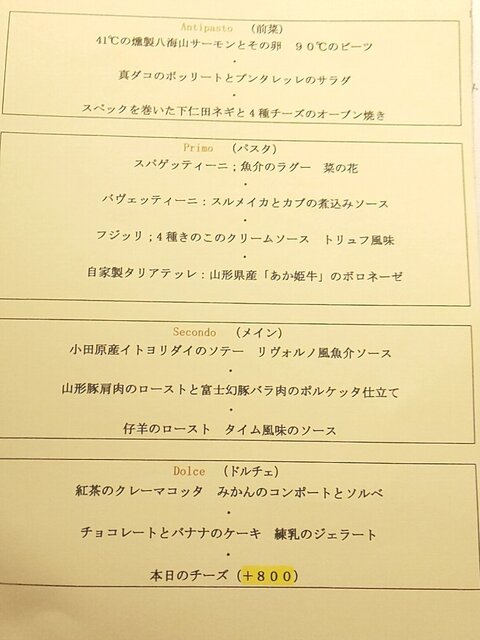 Antipasto （前菜）
41℃の燻製八海山サーモンとその卵　９０℃のビーツ
・
真ダコのボッリートとプンタレッレのサラダ
・
スペックを巻いた下仁田ネギと４種チーズのオーブン焼き
Primo （パスタ）
スパゲッティーニ；魚介のラグー　菜の花
・
バヴェッティーニ：スルメイカとカブの煮込みソース
・
フジッリ；４種きのこのクリームソース　トリュフ風味
・
自家製タリアテッレ：山形県産「あか姫牛」のボロネーゼ
Secondo （メイン）
小田原産イトヨリダイのソテー　リヴォルノ風魚介ソース
・
山形豚肩肉のローストと富士幻豚バラ肉のポルケッタ仕立て
・
仔羊のロースト　タイム風味のソース
Dolce （ドルチェ）
紅茶のクレーマコッタ　みかんのコンポートとソルベ
・
チョコレートとバナナのケーキ　練乳のジェラート
・
本日のチーズ（＋８００）